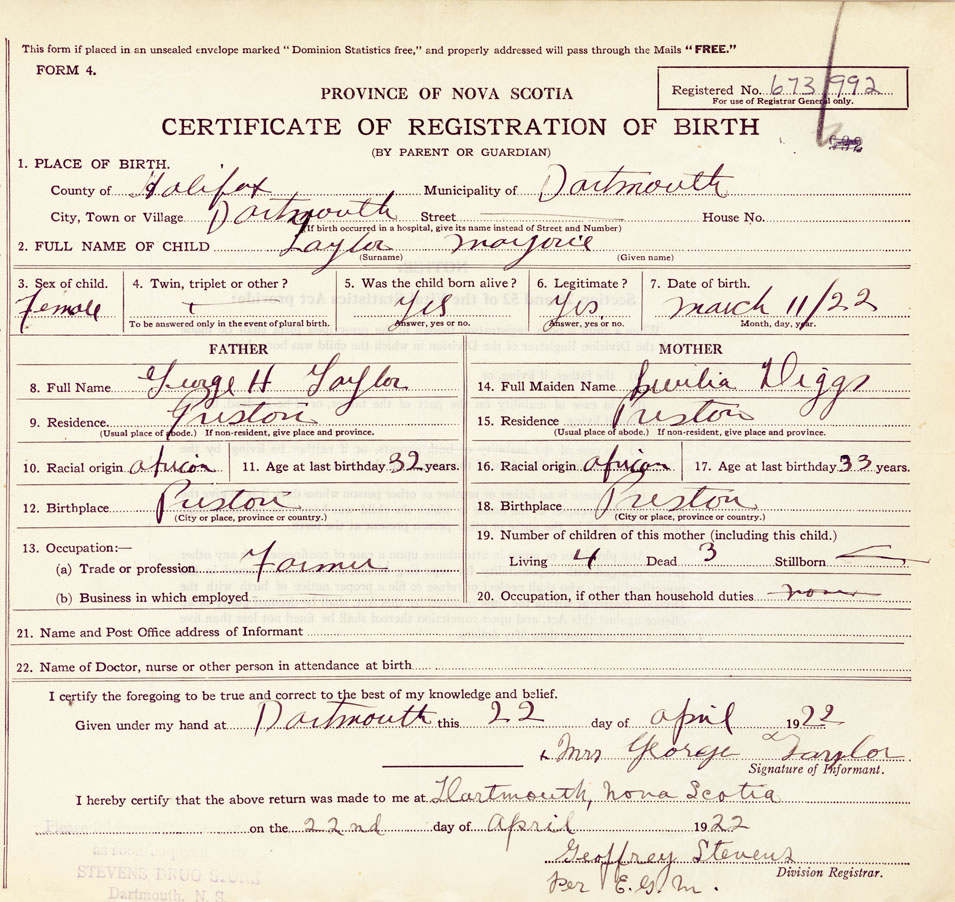 This form if placed in an unsealed envelope marked "Dominion Statistics free," and properly addressed will pass through the Mails "FREE."
FORM 4.
Registered No. 673992
For use of Registrar General only.
PROVINCE OF NOVA SCOTIA
CERTIFICATE OF REGISTRATION OF BIRTH
(BY PARENT OR GUARDIAN)
1. PLACE OF BIRTH.
County of Halifax Municipality of Dartmouth
City, Town or Village Dartmouth Street House No.
(If birth occurred in a hospital, give its name instead of Street and Number)
2. FULL NAME OF CHILD Taylor Marjorie
(Surname) (Given name)
3. Sex of child. 4. Twin, triplet or other? 5. Was the child born alive? 6. Legitimate? 7. Date of birth.
Female Yes Yes. March 11/22
To be answered only in the event of plural birth. Answer, yes or no. Answer, yes or no. Month, day, year.
FATHER MOTHER
8. Full Name George H Taylor 14. Full Maiden Name Diggs
9. Residence. Preston 15. Residence Preston
(Usual place of abode.) If non-resident, give place and province. (Usual place of abode.) If non-resident, give place and province.
10. Racial origin African 11. Age at last birthday 32 years. 16. Racial origin African 17. Age at last birthday 33 years.
12. Birthplace Preston 18. Birthplace Preston
(City or place, province or country.) (City or place, province or country.)
13. Occupation:— 19. Number of children of this mother (including this child.)
(a) Trade or profession Farmer Living 4 Dead 3 Stillborn
(b) Business in which employed 20. Occupation, if other than household duties none
21. Name and Post Office address of Informant
22. Name of Doctor, nurse or other person in attendance at birth
I certify the foregoing to be true and correct to the best of my knowledge and belief.
Given under my hand at Dartmouth this 22 day of April 1922
x Mrs George Taylor
Signature of Informant.
I hereby certify that the above return was made to me at Dartmouth, Nova Scotia
on the 22nd day of April 1922
Geoffrey Stevens
Division Registrar.
Per E.G.M.
STEVENS DRUG STORE
Dartmouth, N. S.